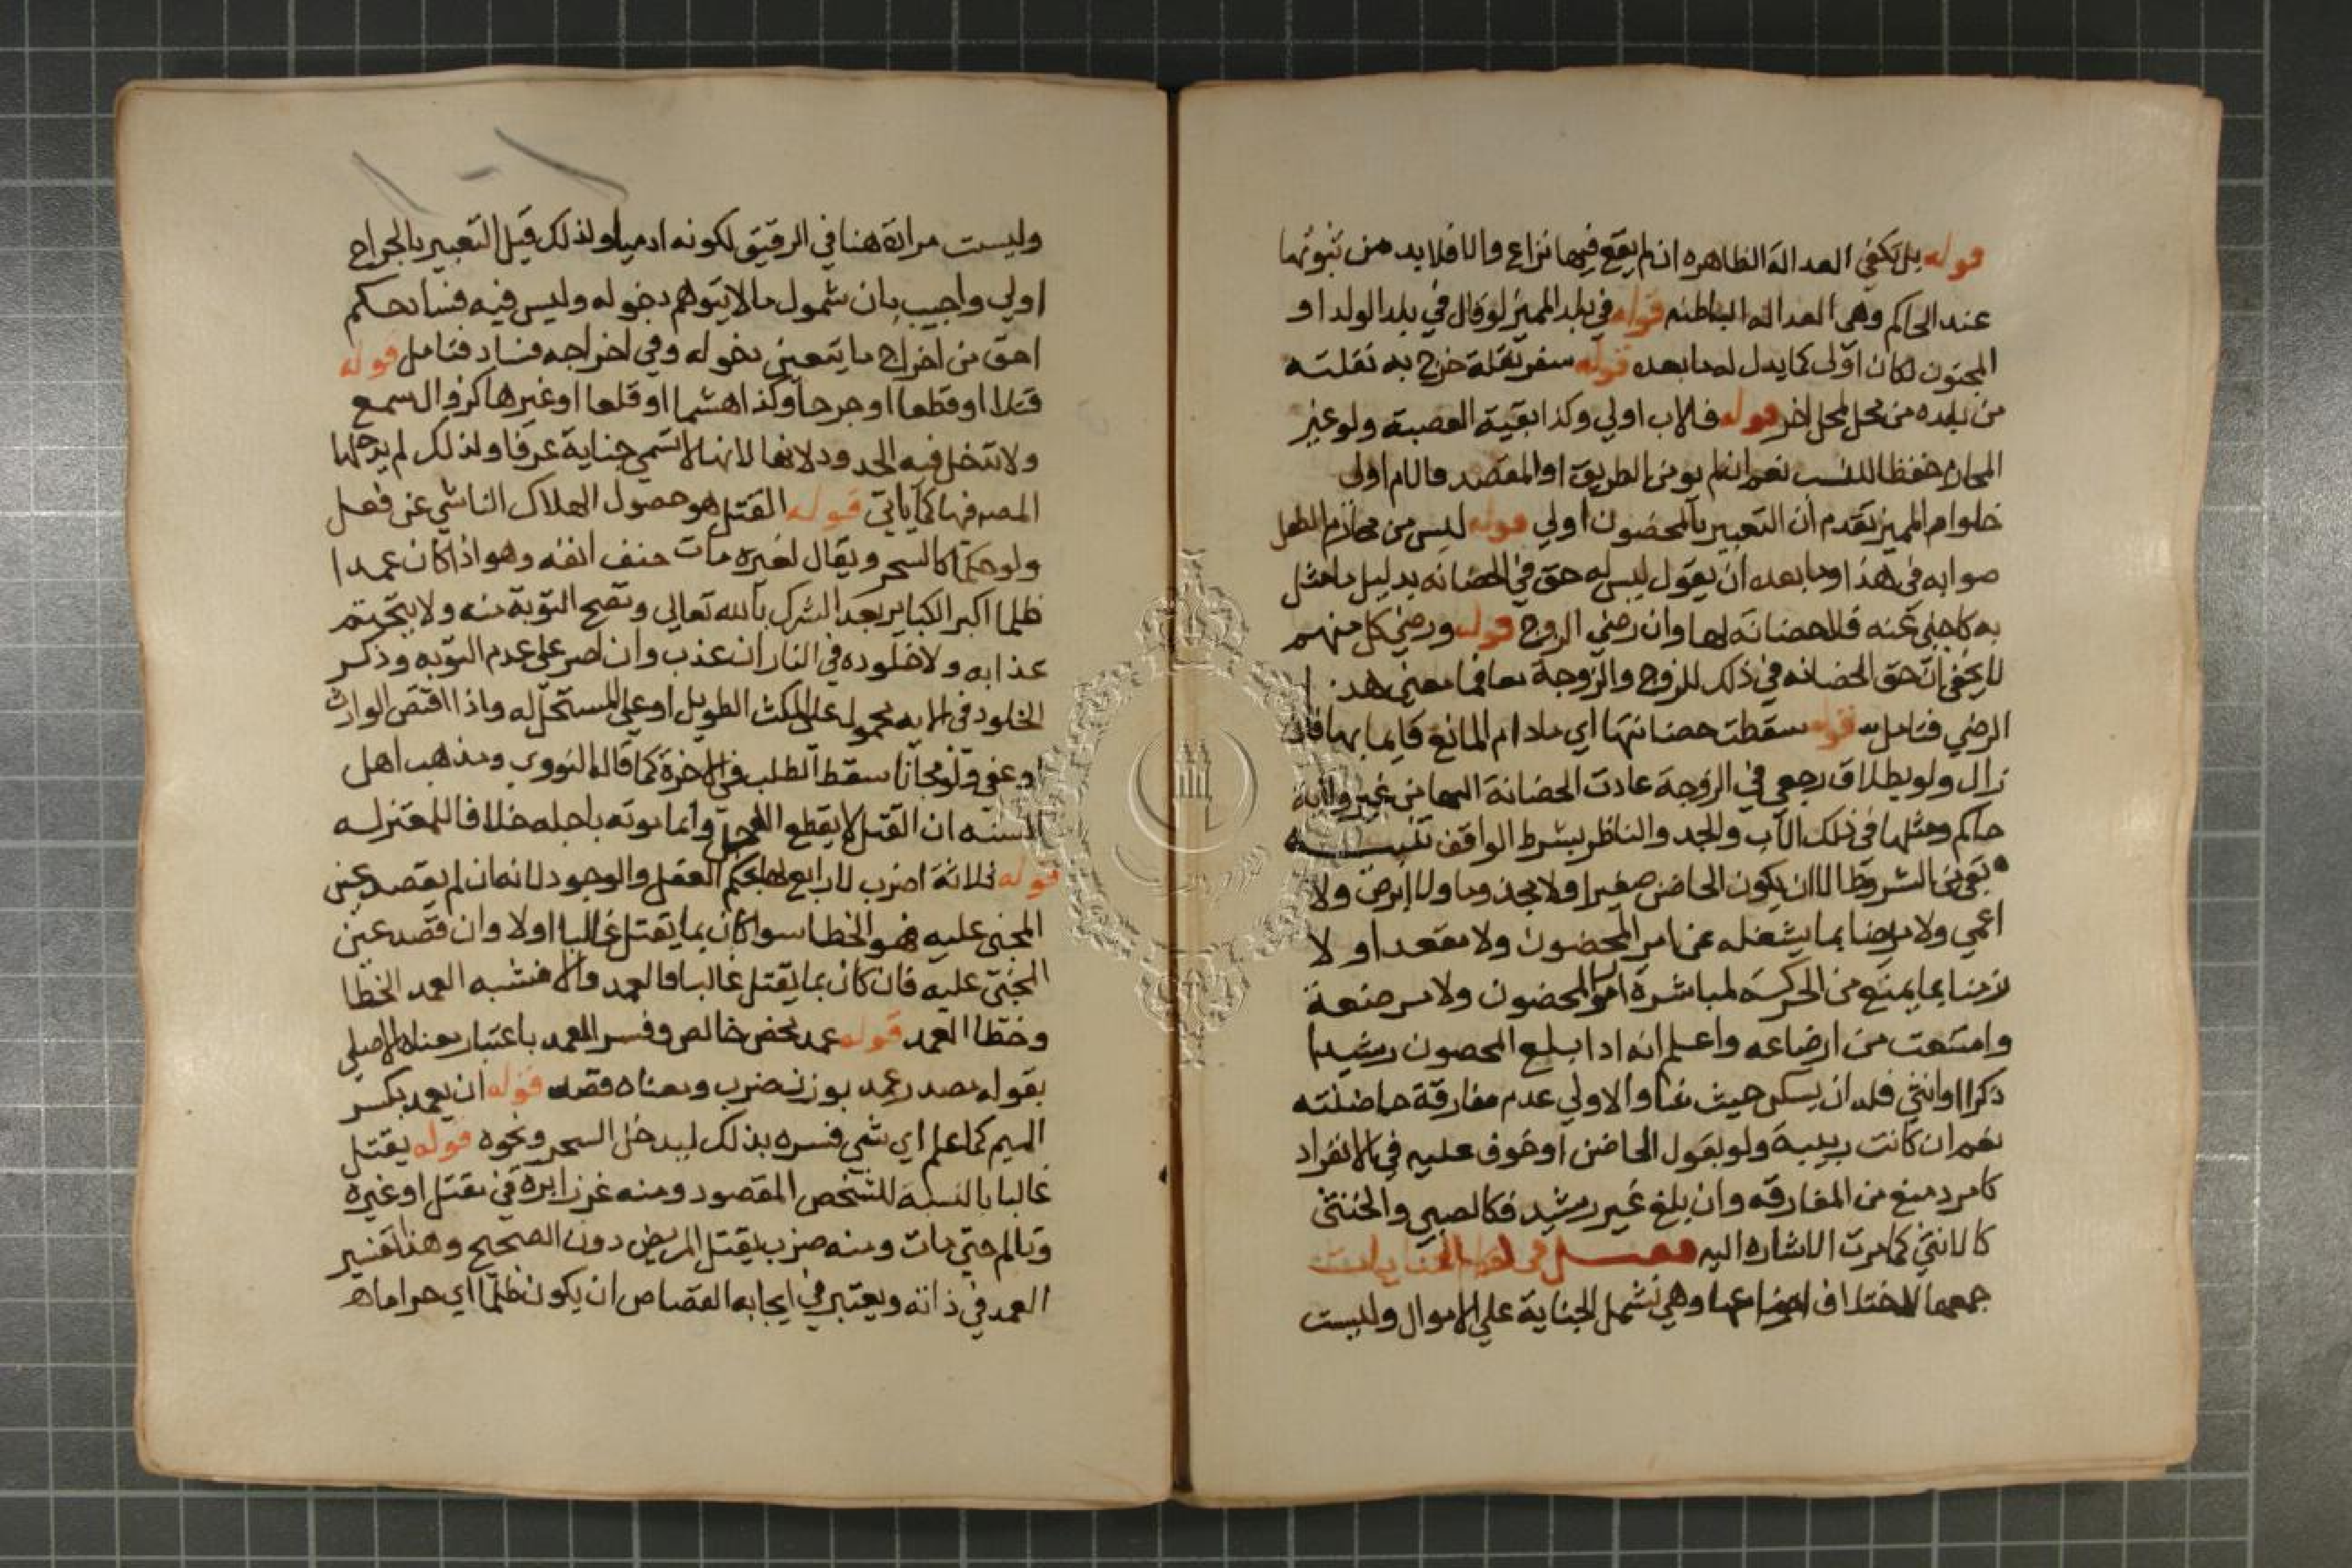 قوله بل تكفي العدالة الظاهره ان لم يقع فيها نزاع والا فلا بد من ثبوتها
عند الحاكم وهي العدالة الباطنه قوله في بلد المميز لو قال في بلد الولد او
المجنون لكان اولى كما يدل له ما بعده قوله سفر نقلة خرج به نقلته
من بلده من محل لمحل اخر قوله فالاب اولي وكذا بقية العصبة ولو غير
المحارم حفظا للنسب نعم ان لم يومن الطريق او المقصد فالام اولى
خلوام المميز تقدم ان التعبير بالمحضون اولي قوله ليس من محارم الطفل
صوابه في هذا وما بعده ان يقول ليس له حق في الحضانه بدليل ما مثل
به كاجنبي عنه فلا حضانة لها وان رضي الزوج قوله ورضي كل منهم
لا يخفى ان حق الحضانه في ذلك للزوج والزوجة معا فما معنى هذ
الرضي فتامله قوله سقطت حضانتها اي مادام المانع قايما بها فان
زال ولو بطلاق رجعي في الزوجة عادت الحضانة اليها من غير ولاية
حاكم ومثلها في ذلك الاب والجد والناظر بشرط الواقف تنبيه
بقي من الشروط الا ان يكون الحاضن صغيرا ولا مجذوما ولا ابرص ولا
اعمي ولا مريضا بما يشغله عن امر المحضون ولا مقعدا ولا
زمنا بما يمنع من الحركة لمباشرة امور المحضون ولا مرضعة
وامتنعت من ارضاعه واعلم انه اذا بلغ المحضون رشيدا
ذكرا او انثي فله ان يسكن حيث شا والاولي عدم مفارقة حاضنته
نعم ان كانت ريبة ولو بقول الحاضن او خوف عليه في الانفراد
كامرد منع من المفارقه وان بلغ غير رشيد فكالصبي والخنثى
كالانثي كما مرت الاشاره اليه فصل في احكام الجنايات
جمعها لاختلاف انواعها وهي تشمل الجناية علي الاموال وليست
وليست مرادة هنا في الرقيق لكونه ادميا ولذلك قيل التعبير بالجراح
اولي واجيب بان شمول ما لا يتوهم دخوله وليس فيه فساد حكم
احق من اخراج ما يتعين دخوله وفي اخراجه فساد فتامل قوله
قتلا او قطعا او جرحا وكذا هشما او قلعا او غيرها كزوال سمع
ولا تدخل فيه الحدود لانها لا تسمي جناية عرفا ولذلك لم يدخلها
المصه فيها كما ياتي قوله القتل هو حصول الهلاك الناشي عن فعل
ولو حكما كالسحر ويقال لغيره مات حتف انفه وهو اذا كان عمدا
ظلما اكبر الكباير بعد الشرك بالله تعالي وتصح التوبة منه ولا يتحتم
عذابه ولا خلوده في النار ان عذب وان اصر علي عدم التوبه وذكر
الخلود في الايه محمول علي المكث الطويل او علي المستحل له واذا اقتص الوارث
او عفي ولو مجانا سقط الطلب في الاخرة كما قاله النووي ومذهب اهل
السنه ان القتل لا يقطع الاجل وانما موته باجله خلافا للمعتزله
قوله ثلاثة اضرب لا رابع لها بحكم العقل والوجود لانه ان لم يقصد عين
المجني عليه فهو الخطا سوا كان بما يقتل غالبا او لا وان قصد عين
المجني عليه فان كان بما يقتل غالبا فالعمد والا فشبه العمد الخطا
وخطا العمد قوله عمد محض خالص وفسر العمد باعتبار معناه الاصلي
بقوله مصدر عمد بوزن ضرب ومعناه قصد قوله ان يعمد بكسر
الميم كما علم اي شي فسره بذلك ليدخل السحر ونحوه قوله يقتل
غالبا بالنسبة للشخص المقصود ومنه غرز ابرة في مقتل او غيره
وتالم حتي مات ومنه ضرب يقتل المريض دون الصحيح وهذا تفسير
العمد في ذاته ويعتبر في ايجابه القصاص ان يكون ظلما اي حراما